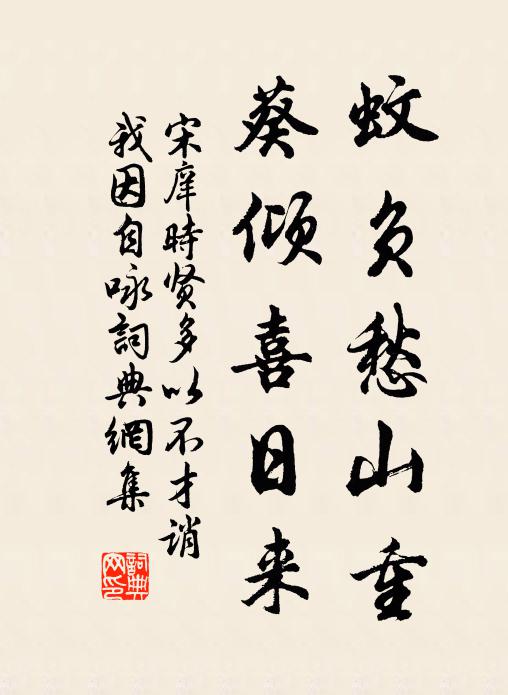 蚊负愁山重
葵倾喜日来
宋庠时贤多以不才诮
我因自咏词典網集
詞典
网印